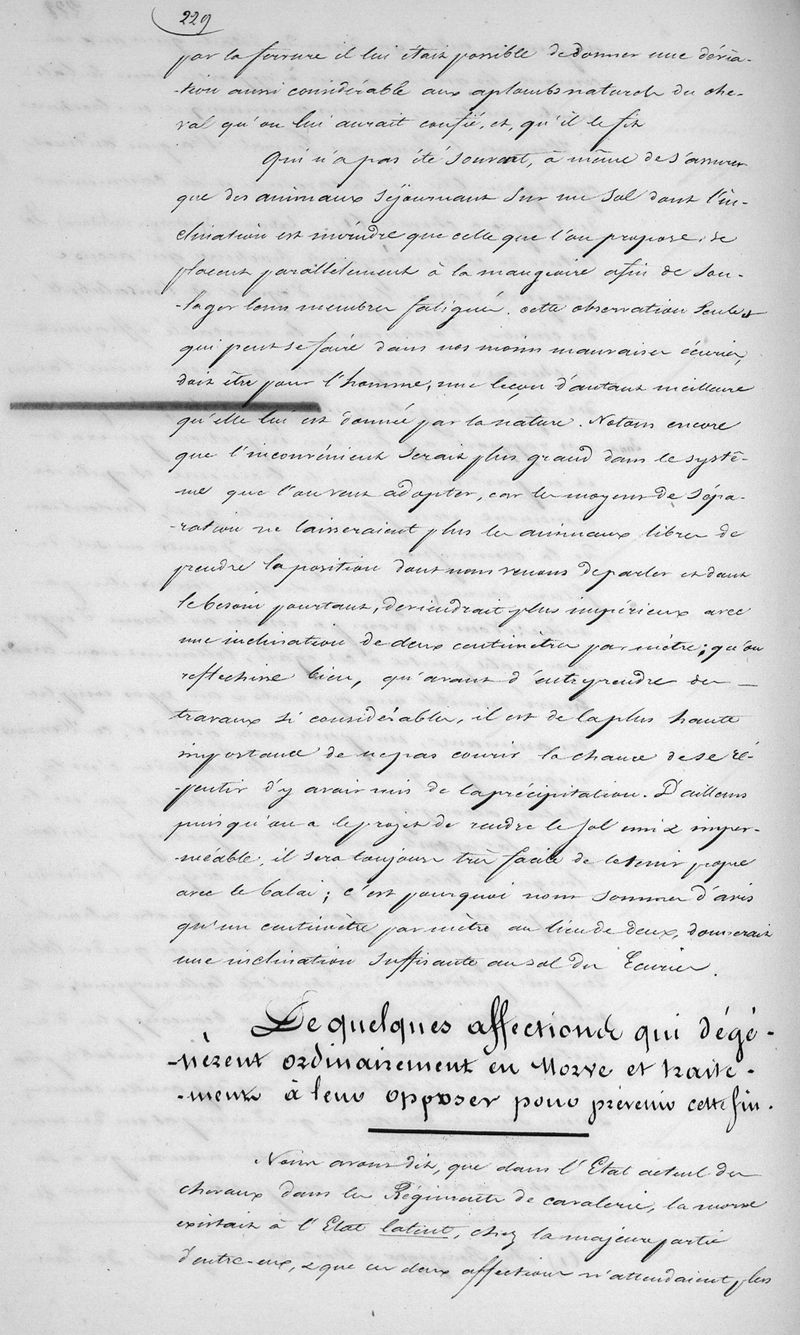 229
par la ferrure il lui était possible de donner une dévia-
-tion aussi considérable aux aplombs naturels du che-
val qu'on lui aurait confié, et, qu'il le fit
Qui n'a pas été souvent, à même de s'assurer
que des animaux séjournant sur un sol dont l'in-
clinaison est moindre que celle que l'on propose, se
placent parallèlement à la mangeoire afin de sou-
-lager leurs membres fatigués. cette observation seule
qui peut se faire dans nos moins mauvaises écuries,
doit être pour l'homme, une leçon d'autant meilleure
qu'elle lui est donnée par la nature. Notons encore
que l'inconvénient serait plus grand dans le systè-
me que l'on veut adopter, car les moyens de sépa-
-ration ne laisseraient plus les animaux libres de
prendre la position dont nous venons de parler et dont
le besoin pourtant, deviendrait plus impérieux avec
une inclination de deux centimètres par mètre; qu'on
réfléchisse bien, qu'avant d'entreprendre des —
travaux si considérables, il est de la plus haute
importance de ne pas courir la chance de se ré-
-pentir d'y avoir mis de la précipitation. D'ailleurs
puisqu'on a le projet de rendre le sol uni & imper-
-méable, il sera toujours très facile de le tenir propre
avec le balai; c'est pourquoi nous sommes d'avis
qu'un centimètre par mètre au lieu de deux, donnerait
une inclination suffisante au sol des Ecuries.
De quelques affections qui dégé-
-nèrent ordinairement en Morve et traite-
-ments à leur opposer pour prévenir cette fin.
Nous avons dit, que dans l'Etat actuel des
chevaux dans les Régiments de cavalerie, la morve
existait à l'Etat latent, chez la majeure partie
d'entre-eux, & que ces deux affections n'attendaient plus